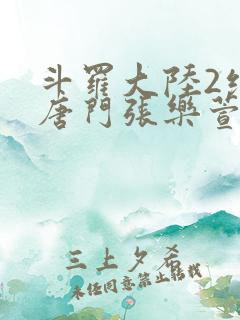 斗羅大陸2絕
唐門張樂萱
三上夕希
未經同意禁止轉載